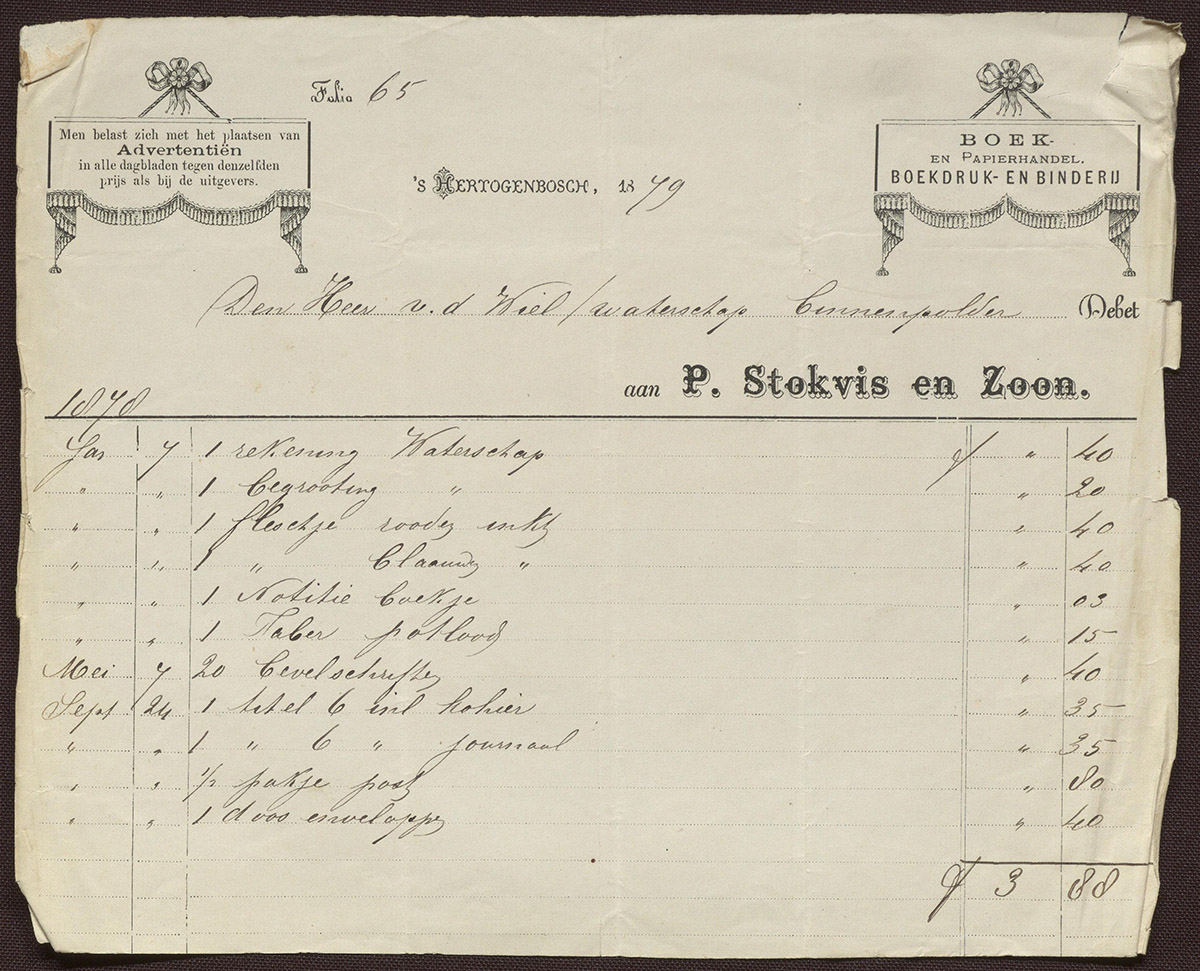 Folio 65
Men belast zich met het plaatsen van
Advertentiën
in alle dagbladen tegen denzelfden
prijs als bij de uitgevers.
BOEK-
EN PAPIERHANDEL.
BOEKDRUK- EN BINDERIJ
'S HERTOGENBOSCH, 1879
Den Heer v. d Wiel / waterschap binnenpolder Debet
aan P. Stokvis en Zoon.
1878
Jan 7 1 rekening Waterschap f " 40
" " 1 begrooting " " 20
" " 1 fleschje roode inkt " 40
" " 1 " blaauwe " " 40
" " 1 Notitie boekje " 03
" " 1 Faber potlood " 15
Mei 7 20 bevelschrifte " 40
Sept 24 1 titel 6 inl kohier " 35
" " 1 " 6 " journaal " 35
" " 1/2 pakje post " 80
" " 1 doos enveloppe " 40
f 3 88